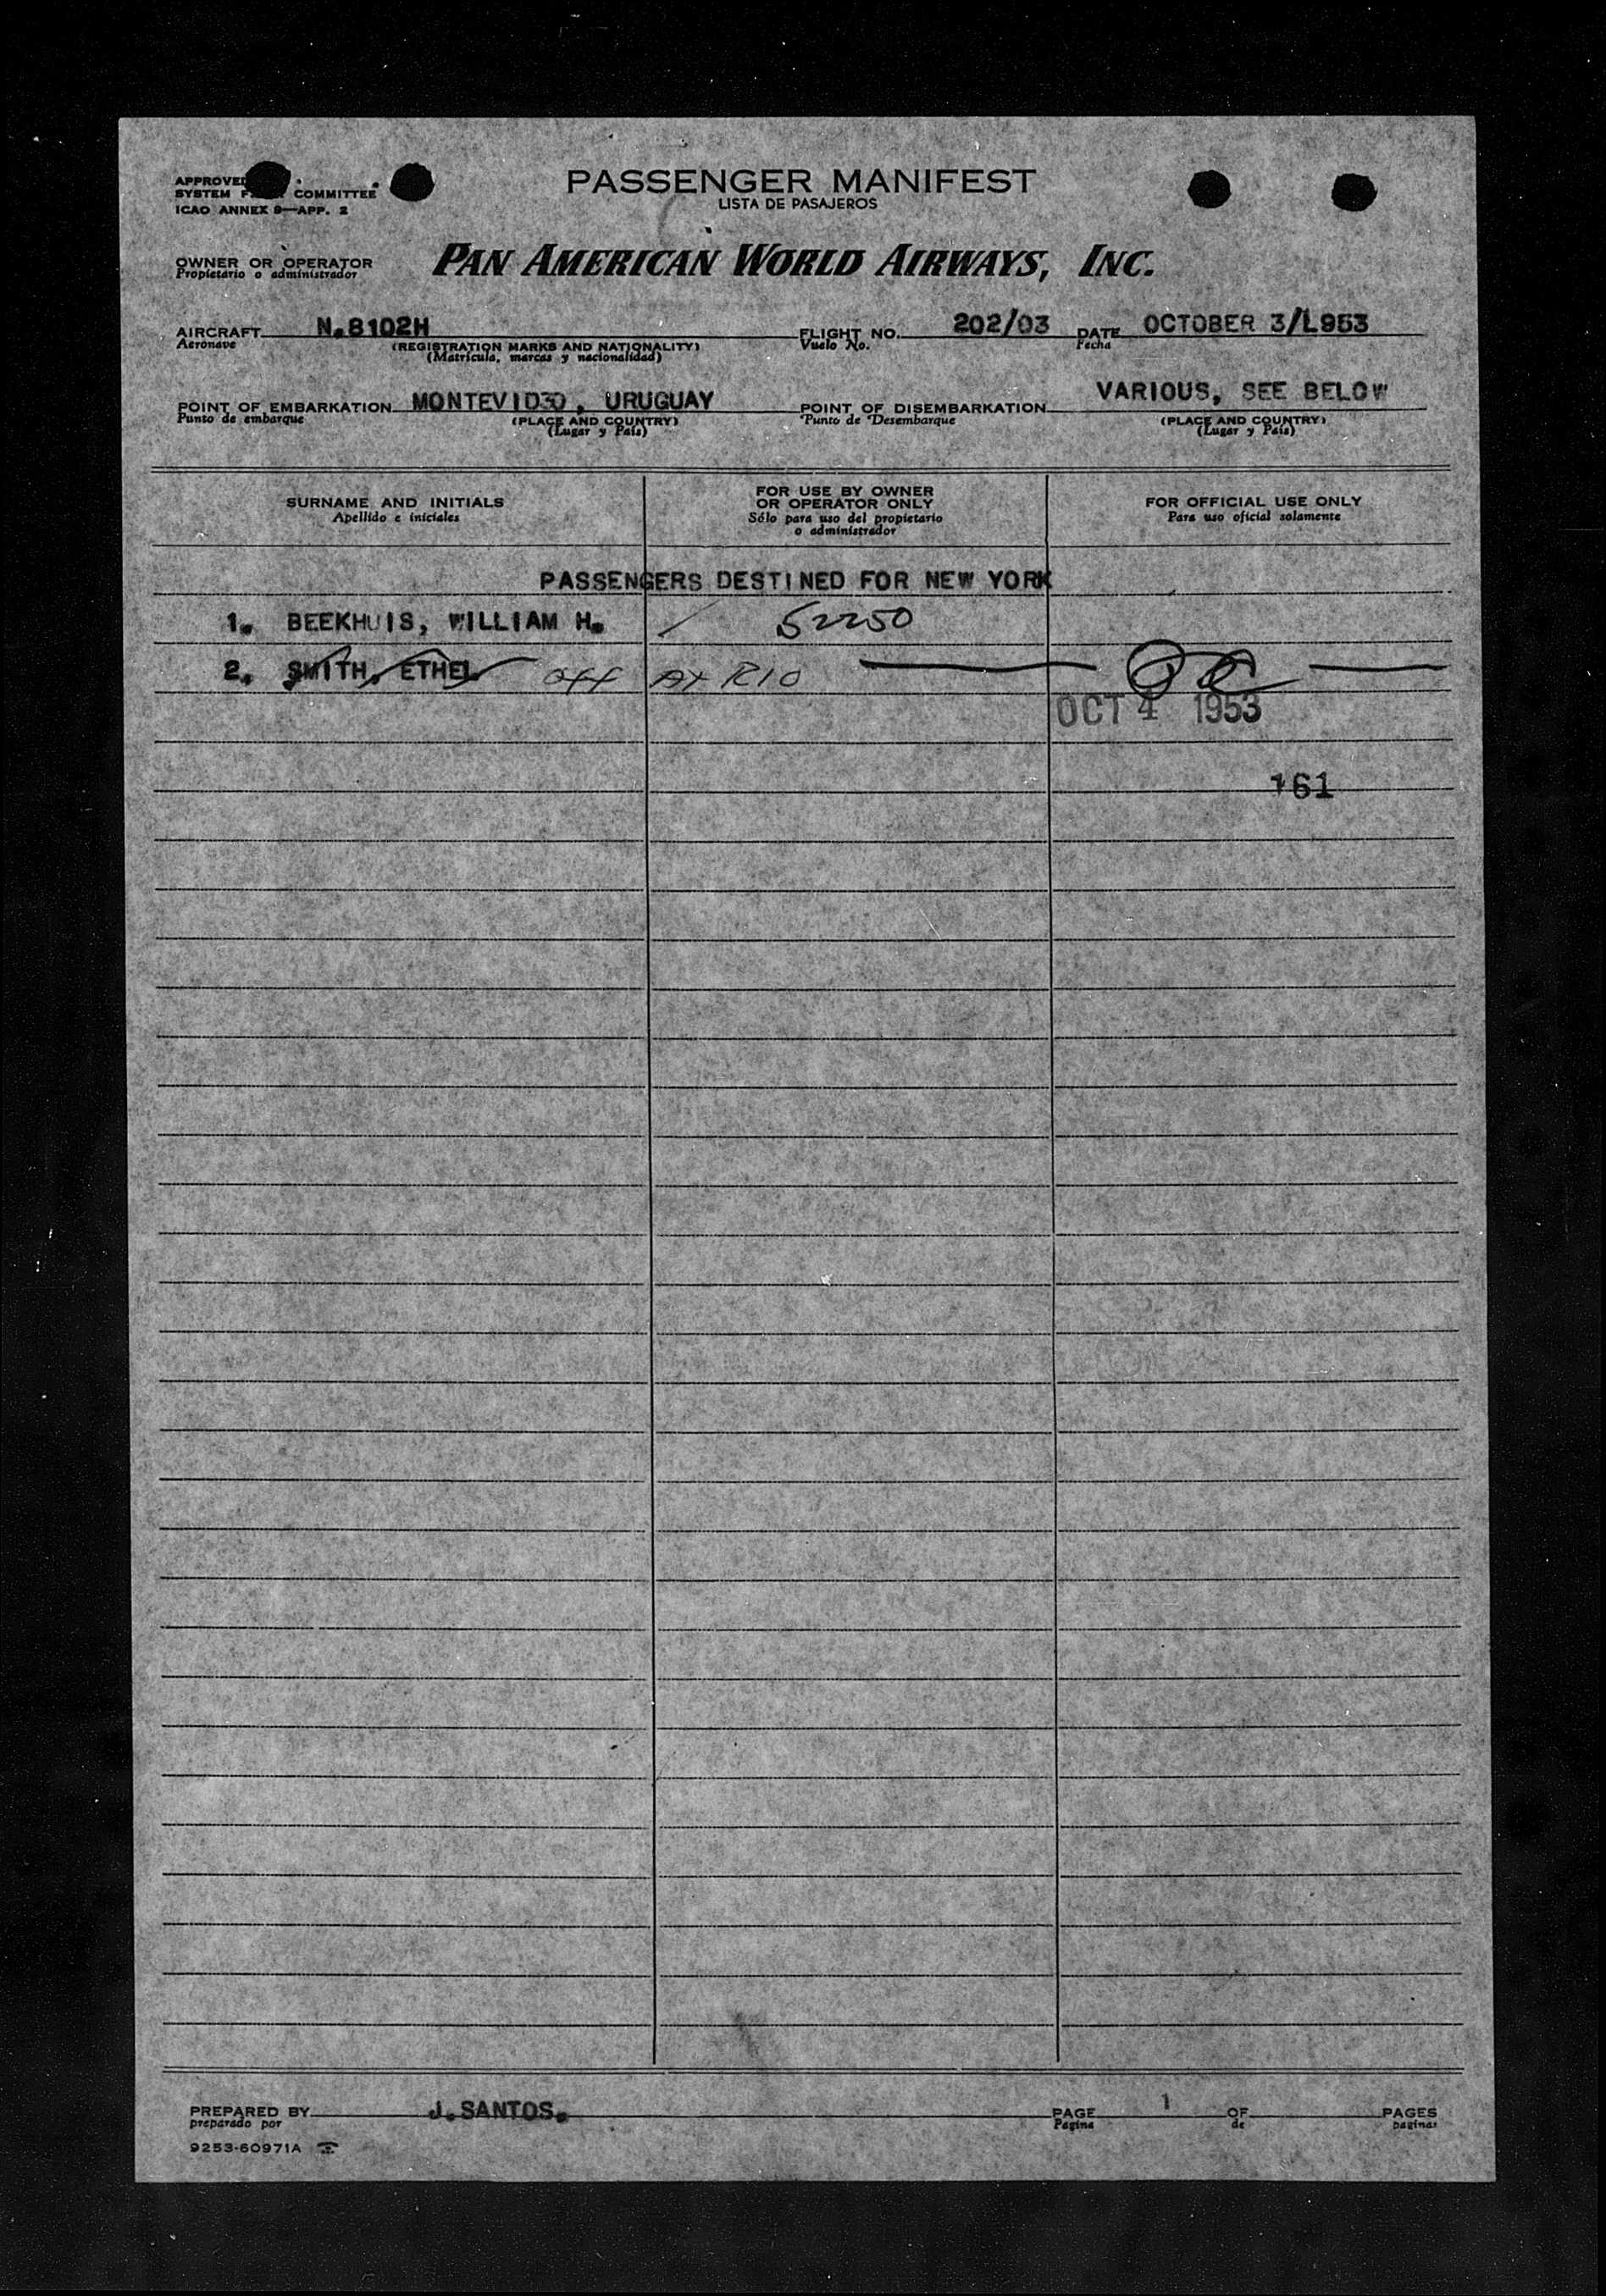 APPROVED
SYSTEM F COMMITTEE
ICAO ANNEX 9—APP. 2
PASSENGER MANIFEST
LISTA DE PASAJEROS
OWNER OR OPERATOR
Propietario o administrador
PAN AMERICAN WORLD AIRWAYS, INC.
AIRCRAFT N.8102H FLIGHT NO. 202/03 DATE OCTOBER 3/L953
Aeronave (REGISTRATION MARKS AND NATIONALITY) Vuelo No. Fecha
(Matrícula, marcas y nacionalidad)
POINT OF EMBARKATION MONTEVID30, URUGUAY POINT OF DISEMBARKATION VARIOUS, SEE BELOW
Punto de embarque (PLACE AND COUNTRY) Punto de Desembarque (PLACE AND COUNTRY)
(Lugar y País) (Lugar y País)
SURNAME AND INITIALS
Apellido e iniciales
FOR USE BY OWNER
OR OPERATOR ONLY
Sólo para uso del propietario
o administrador
FOR OFFICIAL USE ONLY
Para uso oficial solamente
PASSENGERS DESTINED FOR NEW YORK
1. BEEKHUIS, WILLIAM H. / 52250
2. SMITH, ETHEL off AT RIO
OCT 4 1953
161
PREPARED BY J.SANTOS. PAGE 1 OF PAGES
preparado por Página de páginas
9253-60971A